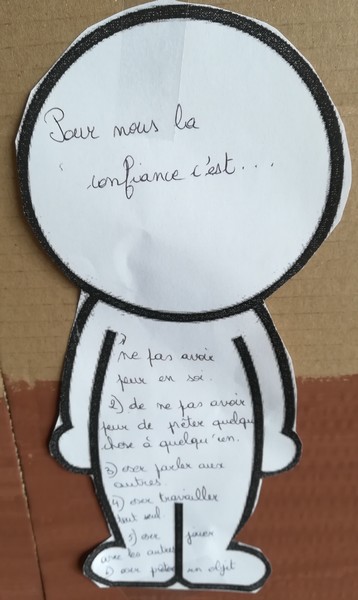 Pour nous la
confiance c'est...
1) ne pas avoir
peur en soi.
2) de ne pas avoir
peur de prêter quelque
chose à quelqu'un.
3) oser parler aux
autres.
4) oser travailler
tout seul
5) oser jouer
avec les autres
6) oser prêter un objet